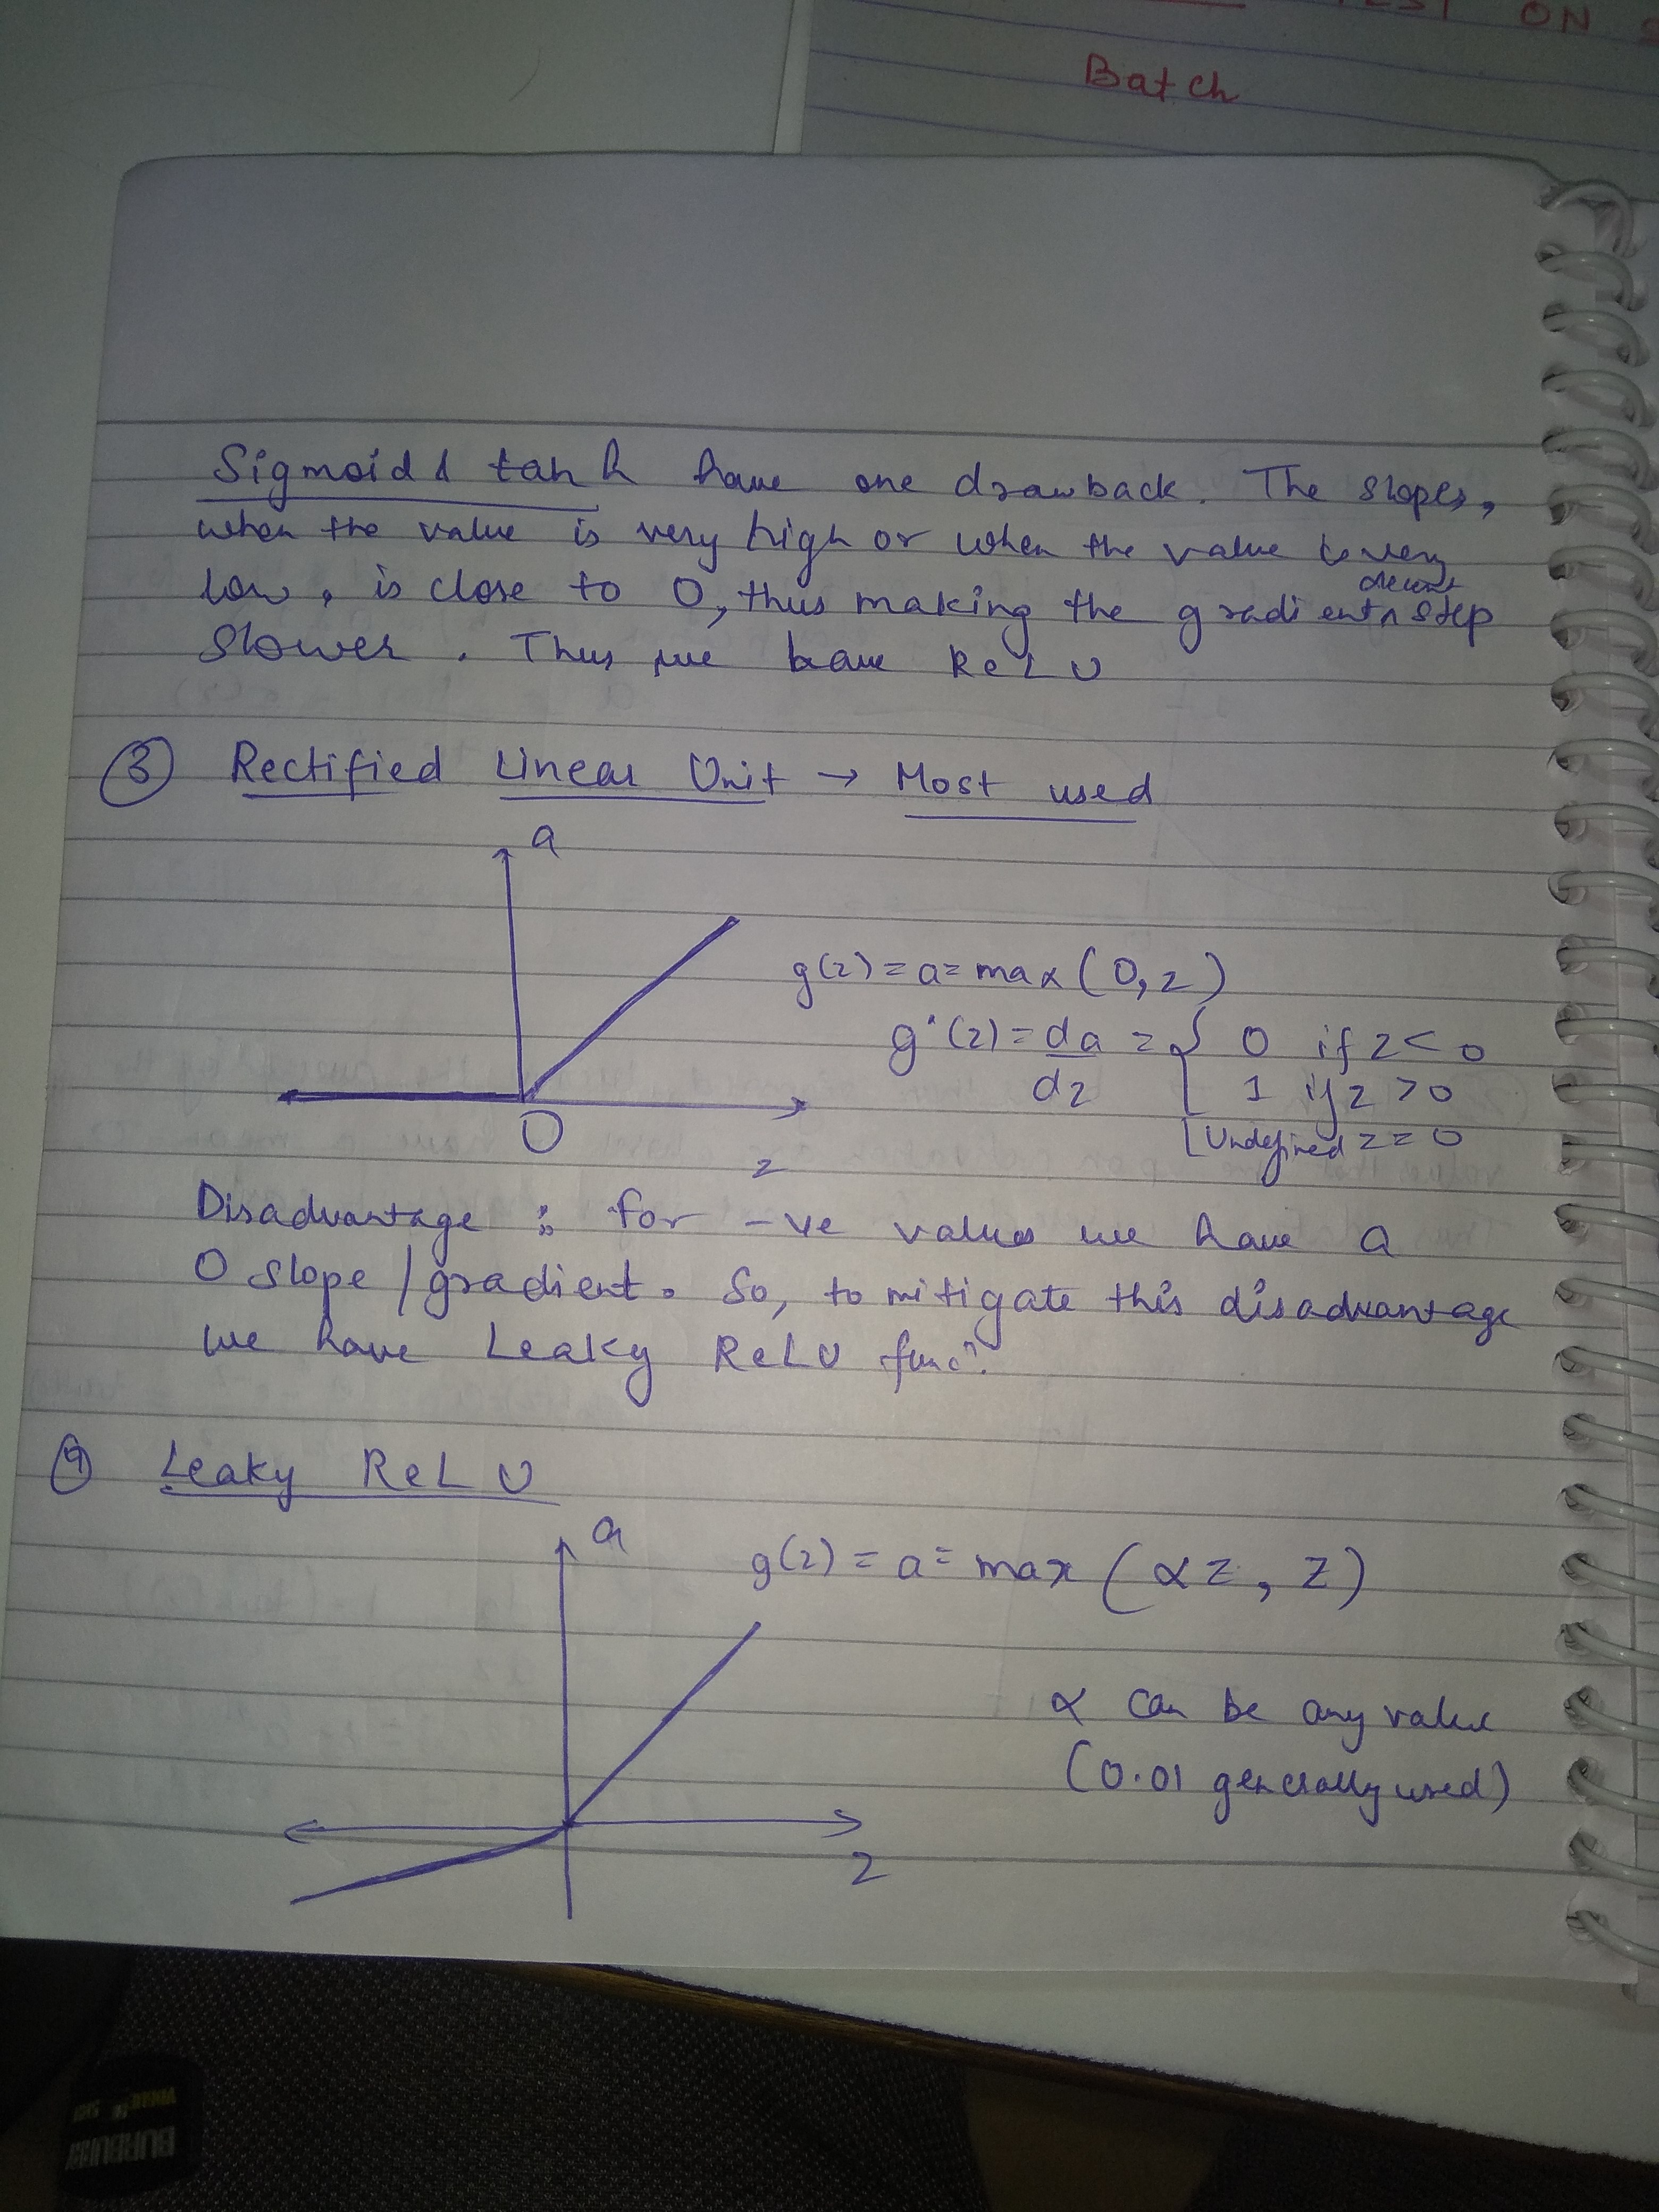 TEST ON
Batch
Sigmoid & tanh have one drawback. The slopes,
when the value is very high or when the value is very
low, is close to 0, thus making the gradient descent step
slower. Thus we have ReLU
③ Rectified Linear Unit → Most used
a
g(z) = a = max(0, z)
g'(z) = da = { 0 if z < 0
dz 1 if z > 0
Undefined z = 0
0
z
Disadvantage : for -ve values we have a
0 slope/gradient. So, to mitigate this disadvantage
we have Leaky ReLU funcⁿ.
④ Leaky ReLU
a
g(z) = a = max(αz, z)
α can be any value
(0.01 generally used)
z